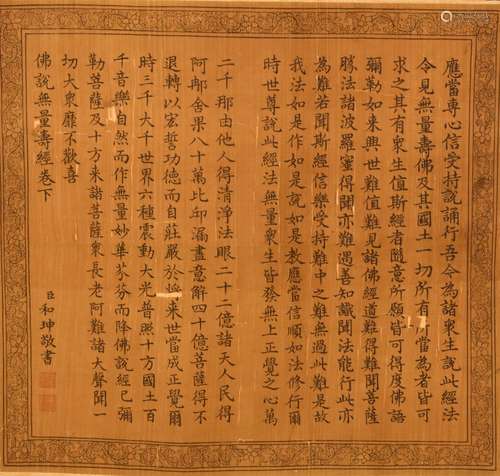 應當專心信受持說誦行吾今為諸衆生說此經法
令見無量壽佛及其國土一切所有所當為者皆可
求之其有衆生值斯經者隨意所願皆可得度佛語
彌勒如來興世難值難見諸佛經道難得難聞菩薩
勝法諸波羅蜜得聞亦難遇善知識聞法能行此亦
為難若聞斯經信樂受持難中之難無過此難是故
我法如是作如是說如是教應當信順如法修行爾
時世尊說此經法無量衆生皆發無上正覺之心萬
二千那由他人得清淨法眼二十二億諸天人民得
阿那舍果八十萬比邱漏盡意解四十億菩薩得不
退轉以宏誓功德而自莊嚴於將來世當成正覺爾
時三千大千世界六種震動大光普照十方國土百
千音樂自然而作無量妙華芬芬而降佛說經已彌
勒菩薩及十方來諸菩薩衆長老阿難諸大聲聞一
切大衆靡不歡喜
佛說無量壽經卷下
臣和珅敬書